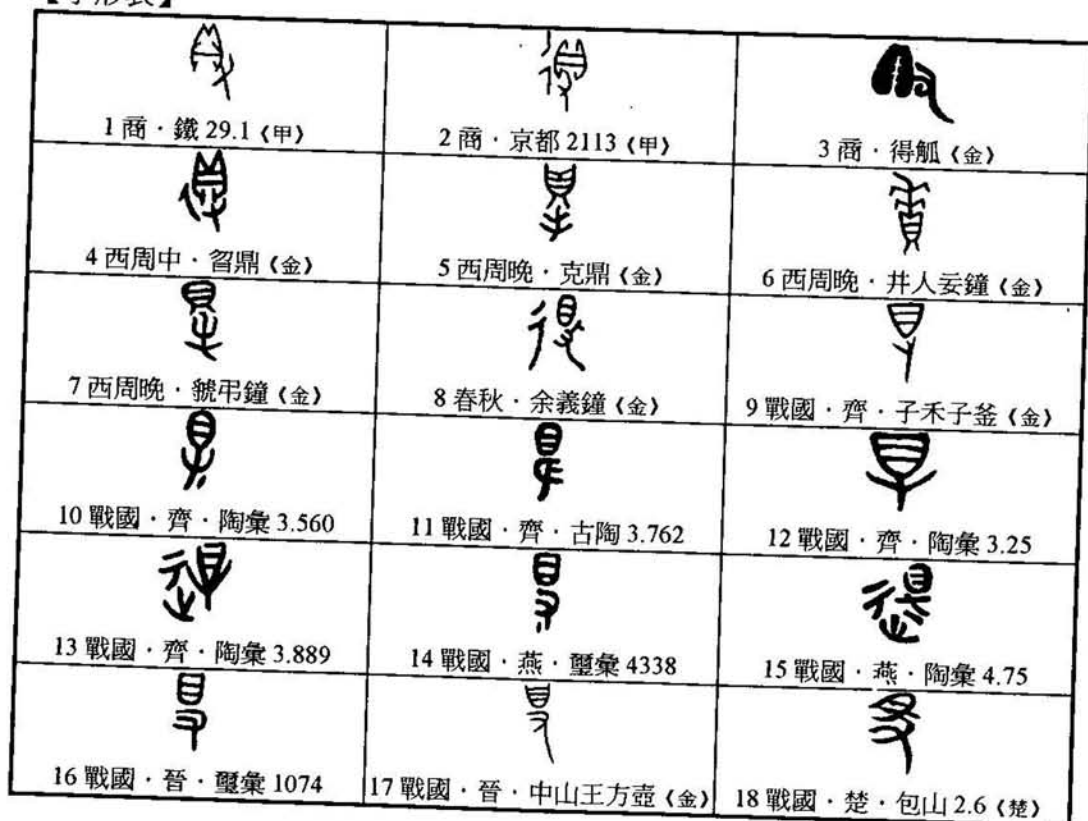 【字形表】
1 商．鐵 29.1《甲》 2 商．京都 2113《甲》 3 商．得觚《金》
4 西周中．曶鼎《金》 5 西周晚．克鼎《金》 6 西周晚．井人妄鐘《金》
7 西周晚．虢弔鐘《金》 8 春秋．余義鐘《金》 9 戰國．齊．子禾子釜《金》
10 戰國．齊．陶彙 3.560 11 戰國．齊．古陶 3.762 12 戰國．齊．陶彙 3.25
13 戰國．齊．陶彙 3.889 14 戰國．燕．璽彙 4338 15 戰國．燕．陶彙 4.75
16 戰國．晉．璽彙 1074 17 戰國．晉．中山王方壺《金》 18 戰國．楚．包山 2.6《楚》